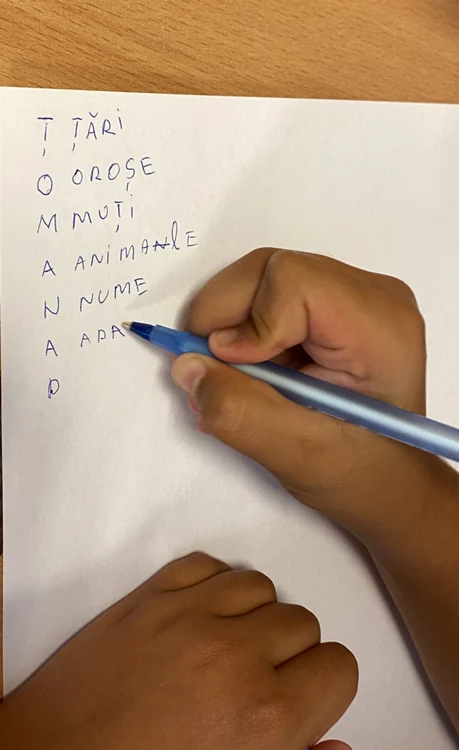 Ț ȚĂRI
O OROȘE
M MUȚI
A ANIMALE
N NUME
A APA
P